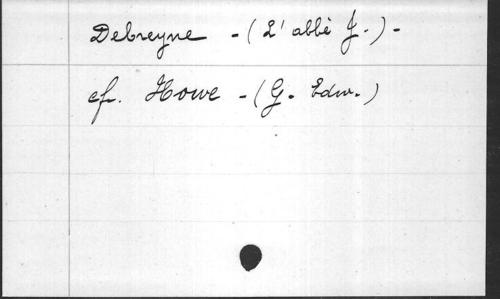 Debreyne - (L' abbé J.) -
cf. Howe - (G. Edw.)